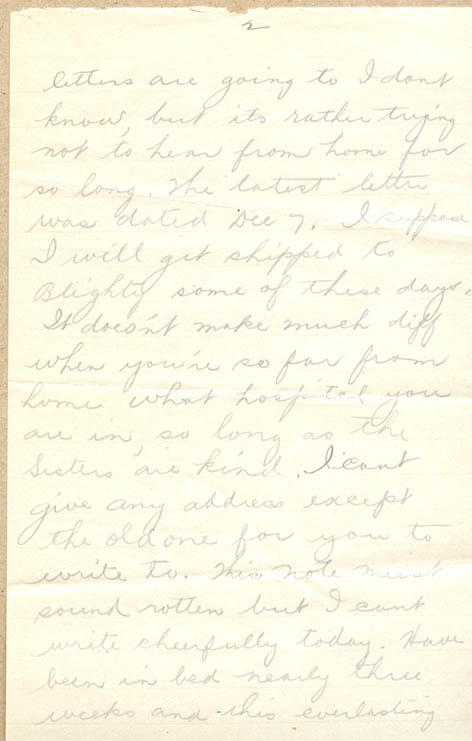 2
letters are going to I dont
know, but its rather trying
not to hear from home for
so long. The latest letter
was dated Dec 7. I suppose
I will get shipped to
Blighty some of these days.
It doesn't make much diff
when you're so far from
home what hospital you
are in, so long as the
Sisters are kind. I cant
give any address except
the old one for you to
write to. This note must
sound rotten but I cant
write cheerfully today. Have
been in bed nearly three
weeks and this everlasting